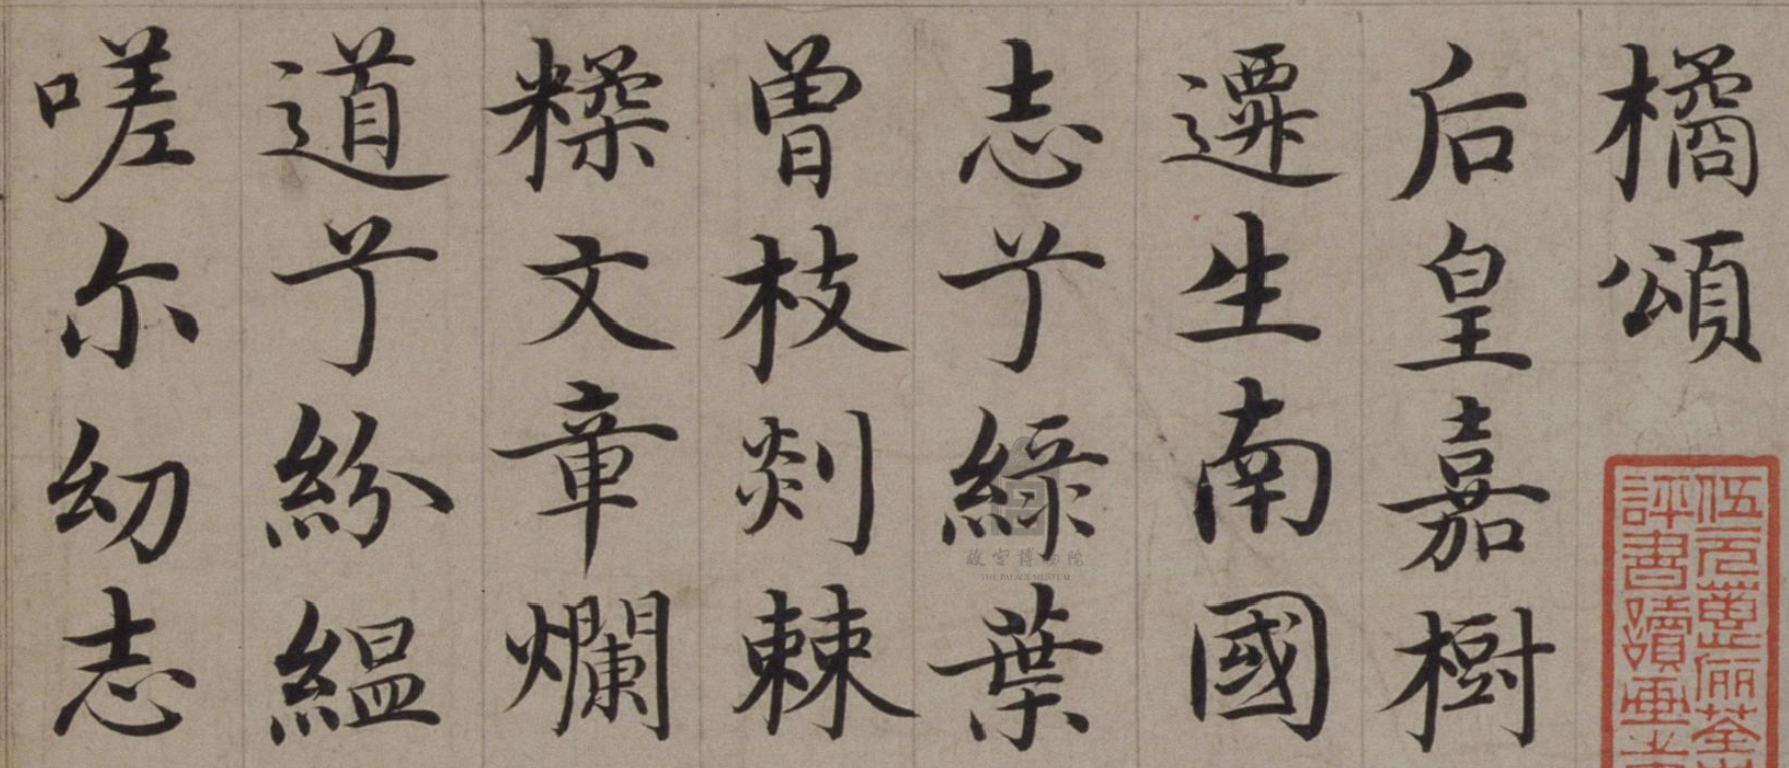 橘頌
后皇嘉樹
遷生南國
志兮綠葉
曾枝剡棘
糅文章爛
道兮紛緼
嗟尔幼志
伍元蕙儷荃
評書讀畫
故宮博物院
THE PALACE MUSEUM